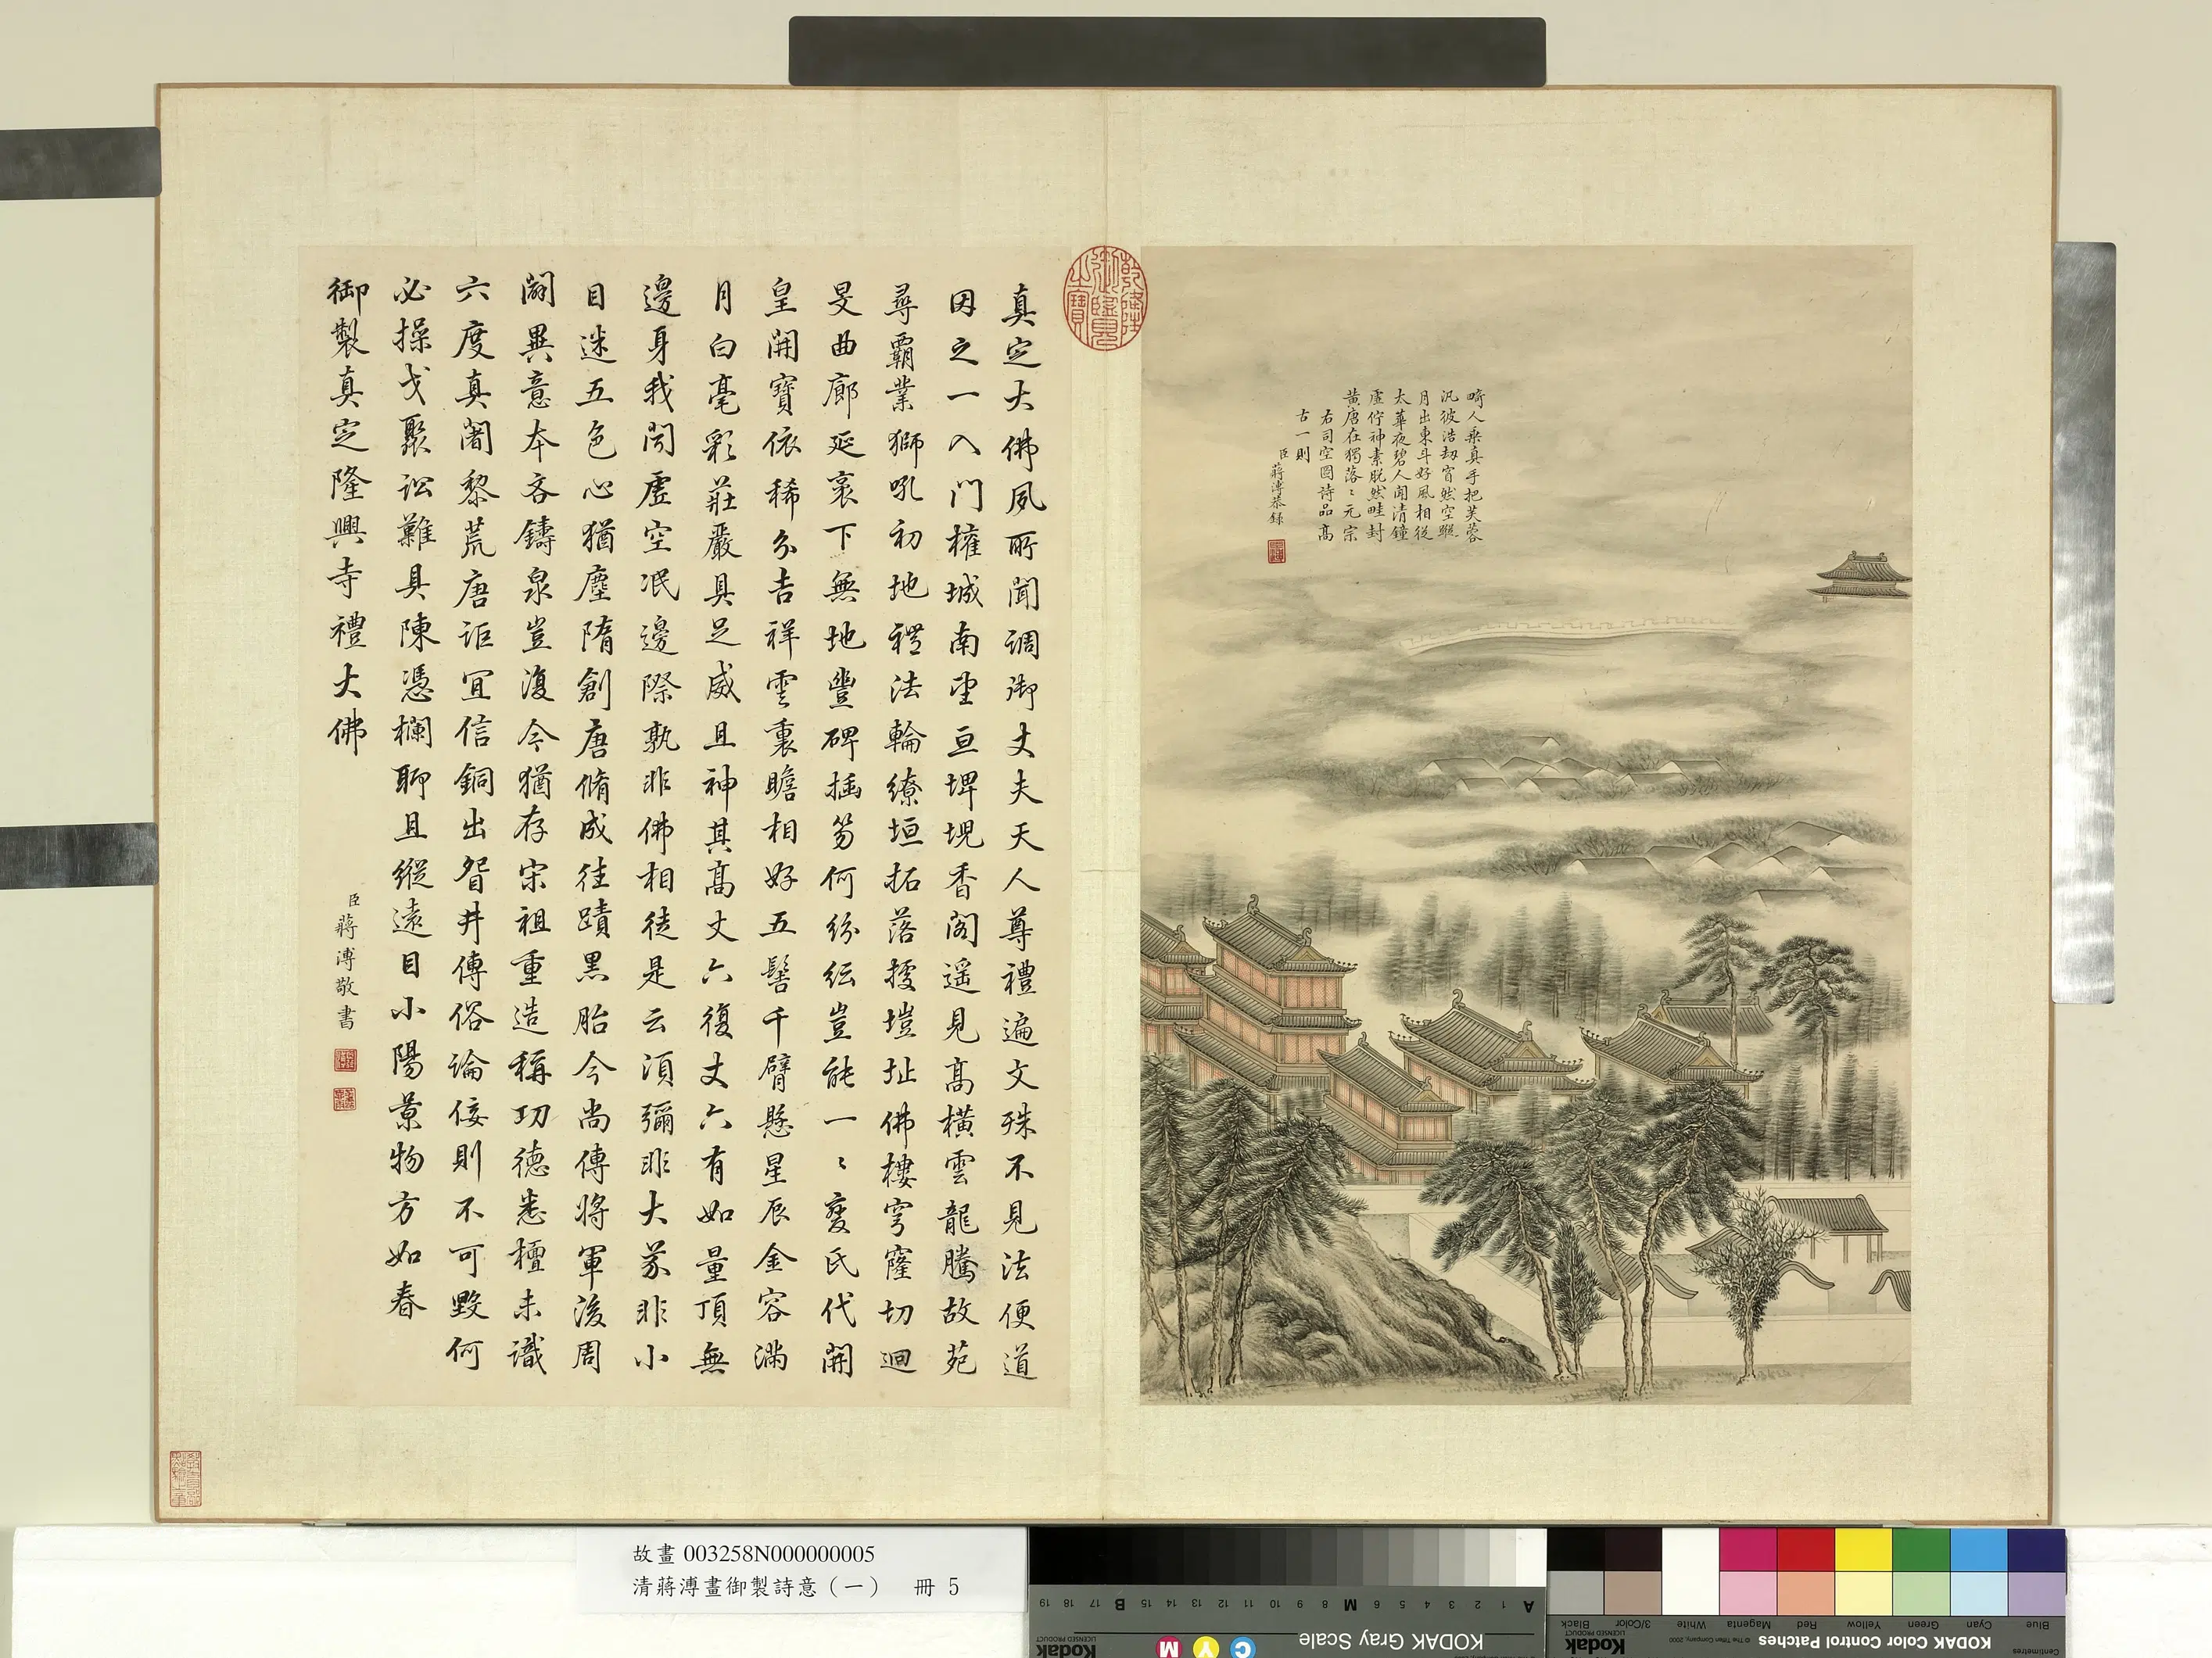 畸人乘真手把芙蓉
汎彼浩劫窅然空蹤
月出東斗好風相從
太華夜碧人聞清鐘
虛佇神素脫然畦封
黃唐在獨落〻元宗
右司空圖詩品高
古一則
臣蔣溥恭錄
乾隆御覽之寶
真定大佛夙所聞調御丈夫天人尊禮遍文殊不見法便道
因之一入門擁城南望亘埤堄香閣遥見高橫雲龍騰故苑
尋霸業獅吼初地禮法輪繚垣拓落擾塏址佛樓穹窿切迴
旻曲廊延袤下無地豐碑插笏何紛紜豈能一〻變氏代開
皇開寶依稀分吉祥雲裏瞻相好五髻千臂懸星辰金容滿
月白毫彩莊嚴具足威且神其高丈六復丈六有如量頂無
邊身我聞虛空泯邊際孰非佛相徒是云須彌非大芥非小
目迷五色心猶塵隋創唐脩成往蹟黑胎今尚傳將軍後周
闢異意本吝鑄泉豈復今猶存宋祖重造稱功德悉檀未識
六度真闍黎荒唐詎宜信銅出眢井傳俗論佞則不可毀何
必操戈聚訟難具陳憑欄聊且縱遠目小陽景物方如春
御製真定隆興寺禮大佛
臣蔣溥敬書
故畫 003258N000000005
清蔣溥畫御製詩意（一） 冊 5
KODAK Gray Scale
A 1 2 3 4 5 6 M 8 9 10 11 12 13 14 15 B 17 18 19
C Y M
Kodak
LICENSED PRODUCT
KODAK Color Control Patches
© The Tiffen Company, 2000
Kodak
LICENSED PRODUCT
Centimetres
Blue Cyan Green Yellow Red Magenta White 3/Color Black